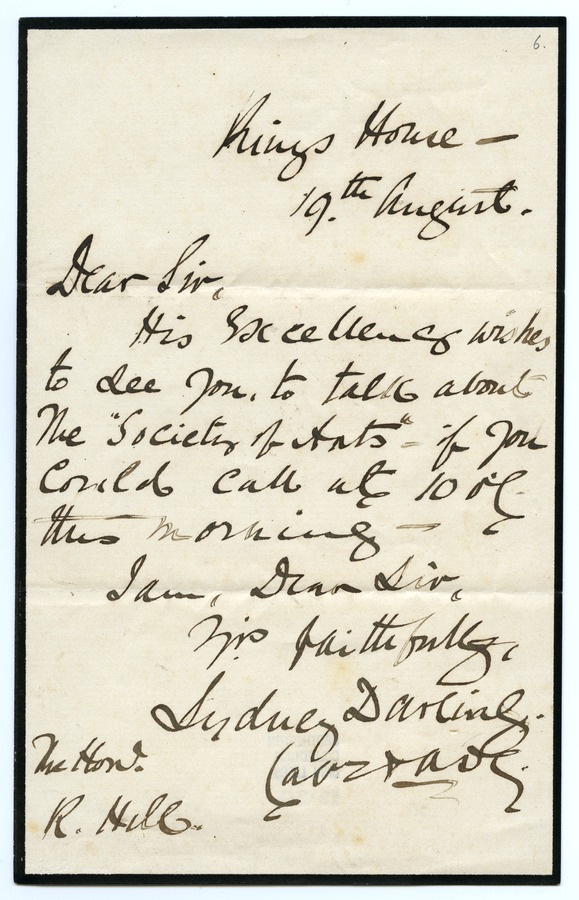 6.
Kings House —
19.th August.
Dear Sir,
His Excellency wishes
to see you, to talk about
The "Society of Arts" - if you
could call at 10 o'c
this morning —
I am, Dear Sir,
Yrs faithfully,
Sydney Darling.
Capt & ADC
The Honl.
R. Hill.